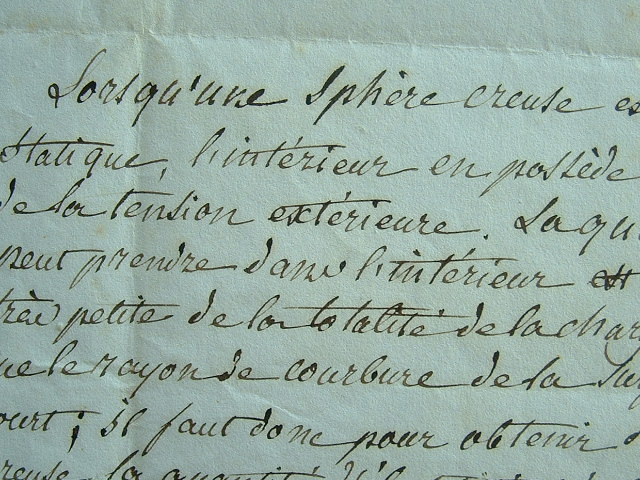 Lorsqu'une Sphère creuse es
statique, l'intérieur en possède
de la tension extérieure. La qu
peut prendre dans l'intérieur est
très petite de la totalité de la char
ue le rayon de courbure de la Su
ourt; il faut donc pour obtenir
reuse la quantité d'él